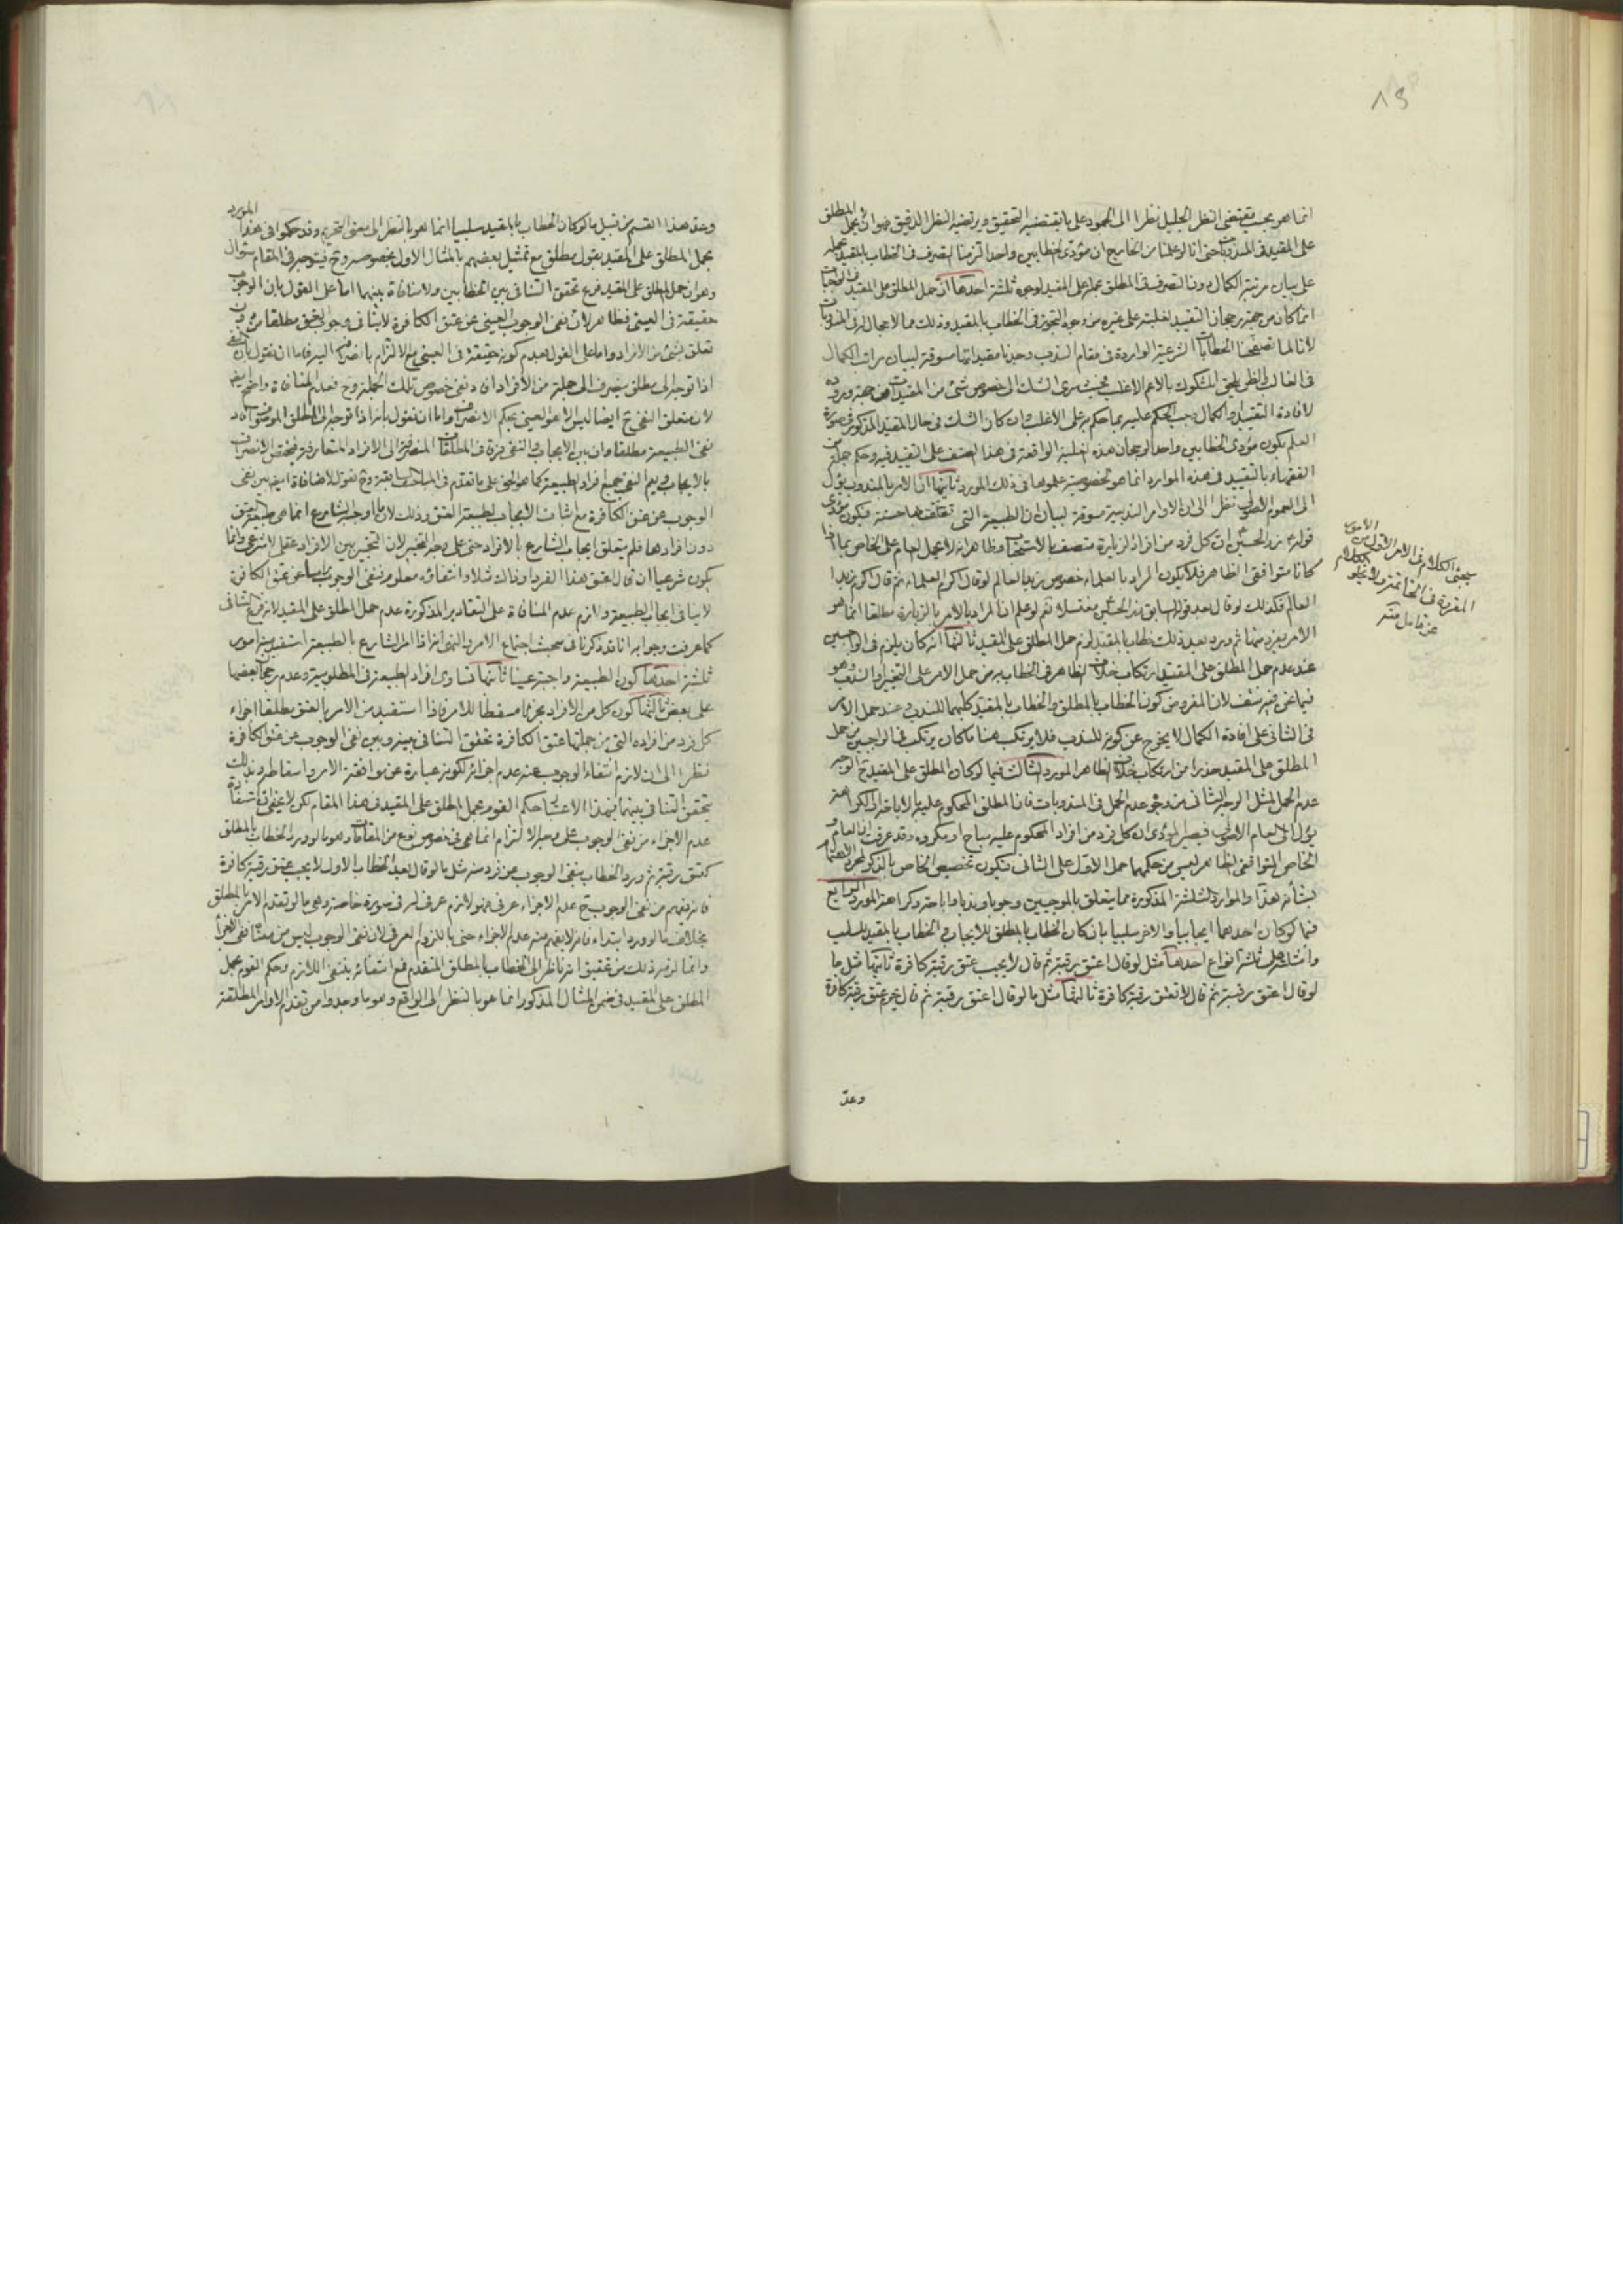 انما هو بحسب مقتضى النظر الجليل نظرا الى الجمود على ما يقتضيه التحقيق ويرتضيه النظر الدقيق فهو ان يحمل المطلق
على المقيد فى المندوبات حتى انا لو علمنا من الخارج ان مؤدى الخطابين واحد التزمنا التصرف فى الخطاب بالمقيد بحمله
على بيان مرتبة الكمال دون التصرف فى المطلق بحمله على المقيد لوجوه ثلثة احدها ان حمل المطلق على المقيد فى الواجبات
انما كان من جهة رجحان التقييد لغلبته على غيره من وجوه التجوز فى الخطاب بالمقيد وذلك مما لا مجال له فى المندوبات
لانا لما تصفحنا الخطابات الشرعية الواردة فى مقام الندب وجدنا مقيداتها مسوقة لبيان مراتب الكمال
فى الغالب والظن يلحق المشكوك بالاعم الاغلب فحيث سرى الشك الى خصوص شئ من المقيدات من جهة وروده
لافادة التقييد او الكمال وجب الحكم عليه بما حكم به على الاغلب وان كان الشك فى حال المقيد المذكور فى صورة
العلم بكون مؤدى الخطابين واحدا لرجحان هذه الغلبة الواقعة فى هذا الصنف على التقييد فيه وحكم جماعة من
الفقهاء بالتقييد فى هذه الموارد انما هو لخصوصية علموها فى ذلك المورد ثانيها ان الامر بالمندوب يؤل
الى العموم الاصولى نظرا الى ان الاوامر الندبية مسوقة لبيان ان الطبيعة التى تعلقت بها حسنة فيكون مؤدى
قوله زر الحسين ان كل فرد من افراد الزيارة متصف بالاستحباب وظاهر انه لا يحمل العام على الخاص بما اذا
كانا متوافقى الظاهر فلا يكون المراد بالعلماء خصوص زيد العالم لو قال اكرم العلماء ثم قال اكرم زيدا
العالم فكذلك لو قال بعد قوله السابق زر الحسين مغتسلا نعم لو علم ان المراد بالامر بالزيارة مطلقا انما هو
الامر بفرد منها ثم ورد بعد ذلك خطاب بالمقيد لزم حمل المطلق على المقيد ثالثها انه كان يلزم فى الواجبين
عند عدم حمل المطلق على المقيد ارتكاب خلاف الظاهر فى الخطاب به من حمل الامر على التخيير او الندب وهو
فيما نحن فيه منتف لان المفروض كون الخطاب بالمطلق والخطاب بالمقيد كليهما للندب وعند حمل الامر
فى الثانى على افادة الكمال لا يخرج عن كونه للندب فلا يرتكب هنا ما كان يرتكب فى الواجبين من حمل
المطلق على المقيد حذرا من ارتكاب خلاف الظاهر المورد الثالث فيما لو كان المطلق على المقيد الوجه
عدم الحمل لمثل الوجه الثانى من وجوه عدم الحمل فى المندوبات فان المطلق المحكوم عليه بالاباحة او الكراهة
يؤل الى العام الاصولى فيصير المؤدى ان كل فرد من افراد المحكوم عليه مباح او مكروه وقد عرفت ان العام و
الخاص المتوافقى الظاهر ليس من حكمهما حمل الاول على الثانى فيكون تخصيص الخاص بالذكر لمجرد الاهتمام
بشأنه هذا والموارد الثلثة المذكورة مما يتعلق بالموجبين وجوبا وندبا واباحة وكراهة المورد الرابع
فيما لو كان احدهما ايجابيا والاخر سلبيا بان كان الخطاب بالمطلق للايجاب والخطاب بالمقيد للسلب
وامثلته على ثلثة انواع احدها مثل لو قال اعتق رقبة ثم قال لا يجب عتق رقبة كافرة ثانيها مثل ما
لو قال اعتق رقبة ثم قال لا تعتق رقبة كافرة ثالثها مثل ما لو قال اعتق رقبة ثم قال يحرم عتق رقبة كافرة
وعدّ
سيجئ الكلام فى الامر الاول من الامور
المقررة فى الخاتمة ولا يخلو الكلام
عن تامل منه
وعد هذا القسم من قبيل ما لو كان الخطاب بالمقيد سلبيا انما هو بالنظر الى معنى التحريم وقد حكموا فى هذا المورد
بحمل المطلق على المقيد بقول مطلق مع تمثيل بعضهم بالمثال الاول بخصوصه وح فيتوجه فى المقام سؤال
وهو ان حمل المطلق على المقيد فرع تحقق التنافى بين الخطابين ولا منافاة بينهما اما على القول بان الوجوب
حقيقة فى العينى فظاهر لان نفى الوجوب العينى عن عتق الكافرة لا ينافى وجوب العتق مطلقا من دون
تعلق بشئ من الافراد واما على القول بعدم كونه حقيقة فى العينى مع الالتزام بانصرافه اليه فاما ان نقول بان النفى
اذا توجه الى مطلق ينصرف الى جملة من الافراد افاد نفى خصوص تلك الجملة وح فعدم المنافاة واضح ايضا
لان متعلق النفى ح ايضا ليس الا هو العينى بحكم الانصراف واما ان نقول بانه اذا توجه الى المطلق الموصوف افاد
نفى الطبيعة مطلقا وان بين الايجاب والنفى فرقا فى المطلقات المنصرفة الى الافراد المتعارفة فيختص الانصراف
بالايجاب ويعم النفى جميع افراد الطبيعة كما هو الحق على ما تقدم فى المباحث السابقة وح نقول لا منافاة ايضا بين نفى
الوجوب عن عتق الكافرة مع اثبات الايجاب لطبيعة العتق وذلك لان ما اوجبه الشارع انما هى طبيعة العتق
دون افرادها فلم يتعلق ايجاب الشارع بالافراد حتى على وجه التخيير لان التخيير بين الافراد عقلى لا شرعى وانما
يكون شرعيا ان قال اعتق هذا الفرد او ذاك مثلا وانتفاؤه معلوم فنفى الوجوب راسا عن عتق الكافرة
لا ينافى ايجاب الطبيعة ولازم عدم المنافاة على التقادير المذكورة عدم حمل المطلق على المقيد لانه فرع التنافى
كما عرفت وجوابه انا قد ذكرنا فى مبحث اجتماع الامر والنهى انه اذا امر الشارع بالطبيعة استفيد منه امور
ثلثة احدها كون الطبيعة واجبة عينا ثانيها تساوى افراد الطبيعة فى المطلوبية وعدم رجحان بعضها
على بعض ثالثها كون كل من الافراد مجزيا مسقطا للامر فاذا استفيد من الامر بالعتق مطلقا اجزاء
كل فرد من افراده التى من جملتها عتق الكافرة تحقق التنافى بينه وبين نفى الوجوب عن عتق الكافرة
نظرا الى ان لازم انتفاء الوجوب عنه عدم اجزائه لكونه عبارة عن موافقة الامر واسقاطه وبذلك
يتحقق التنافى بينهما فبهذا الاعتبار حكم القوم بحمل المطلق على المقيد فى هذا المقام لكن لا يخفى ان استفادة
عدم الاجزاء من نفى الوجوب على وجه الالتزام انما هى فى خصوص نوع من المقامات وهو ما لو ورد الخطاب بالمطلق
كعتق رقبة ثم ورد الخطاب بنفى الوجوب عن فرد منه مثل ما لو قال بعد الخطاب الاول لا يجب عتق رقبة كافرة
فانه يفهم من نفى الوجوب ح عدم الاجزاء عرفا فهو لازم عرفى له فى صورة خاصة وهى ما لو تقدم الامر بالمطلق
بخلاف ما لو ورد ابتداء فانه لا يفهم منه عدم الاجزاء حتى باللزوم العرفى لان نفى الوجوب ليس من معناه نفى الاجزاء
وانما لزمه ذلك من تحقيق انه ناظر الى الخطاب بالمطلق المتقدم فمع انتفائه ينتفى اللازم وحكم القوم بحمل
المطلق على المقيد فى ضمن المثال المذكور انما هو بالنظر الى الواقع وهو ما وجدوا من تقدم الاوامر المطلقة